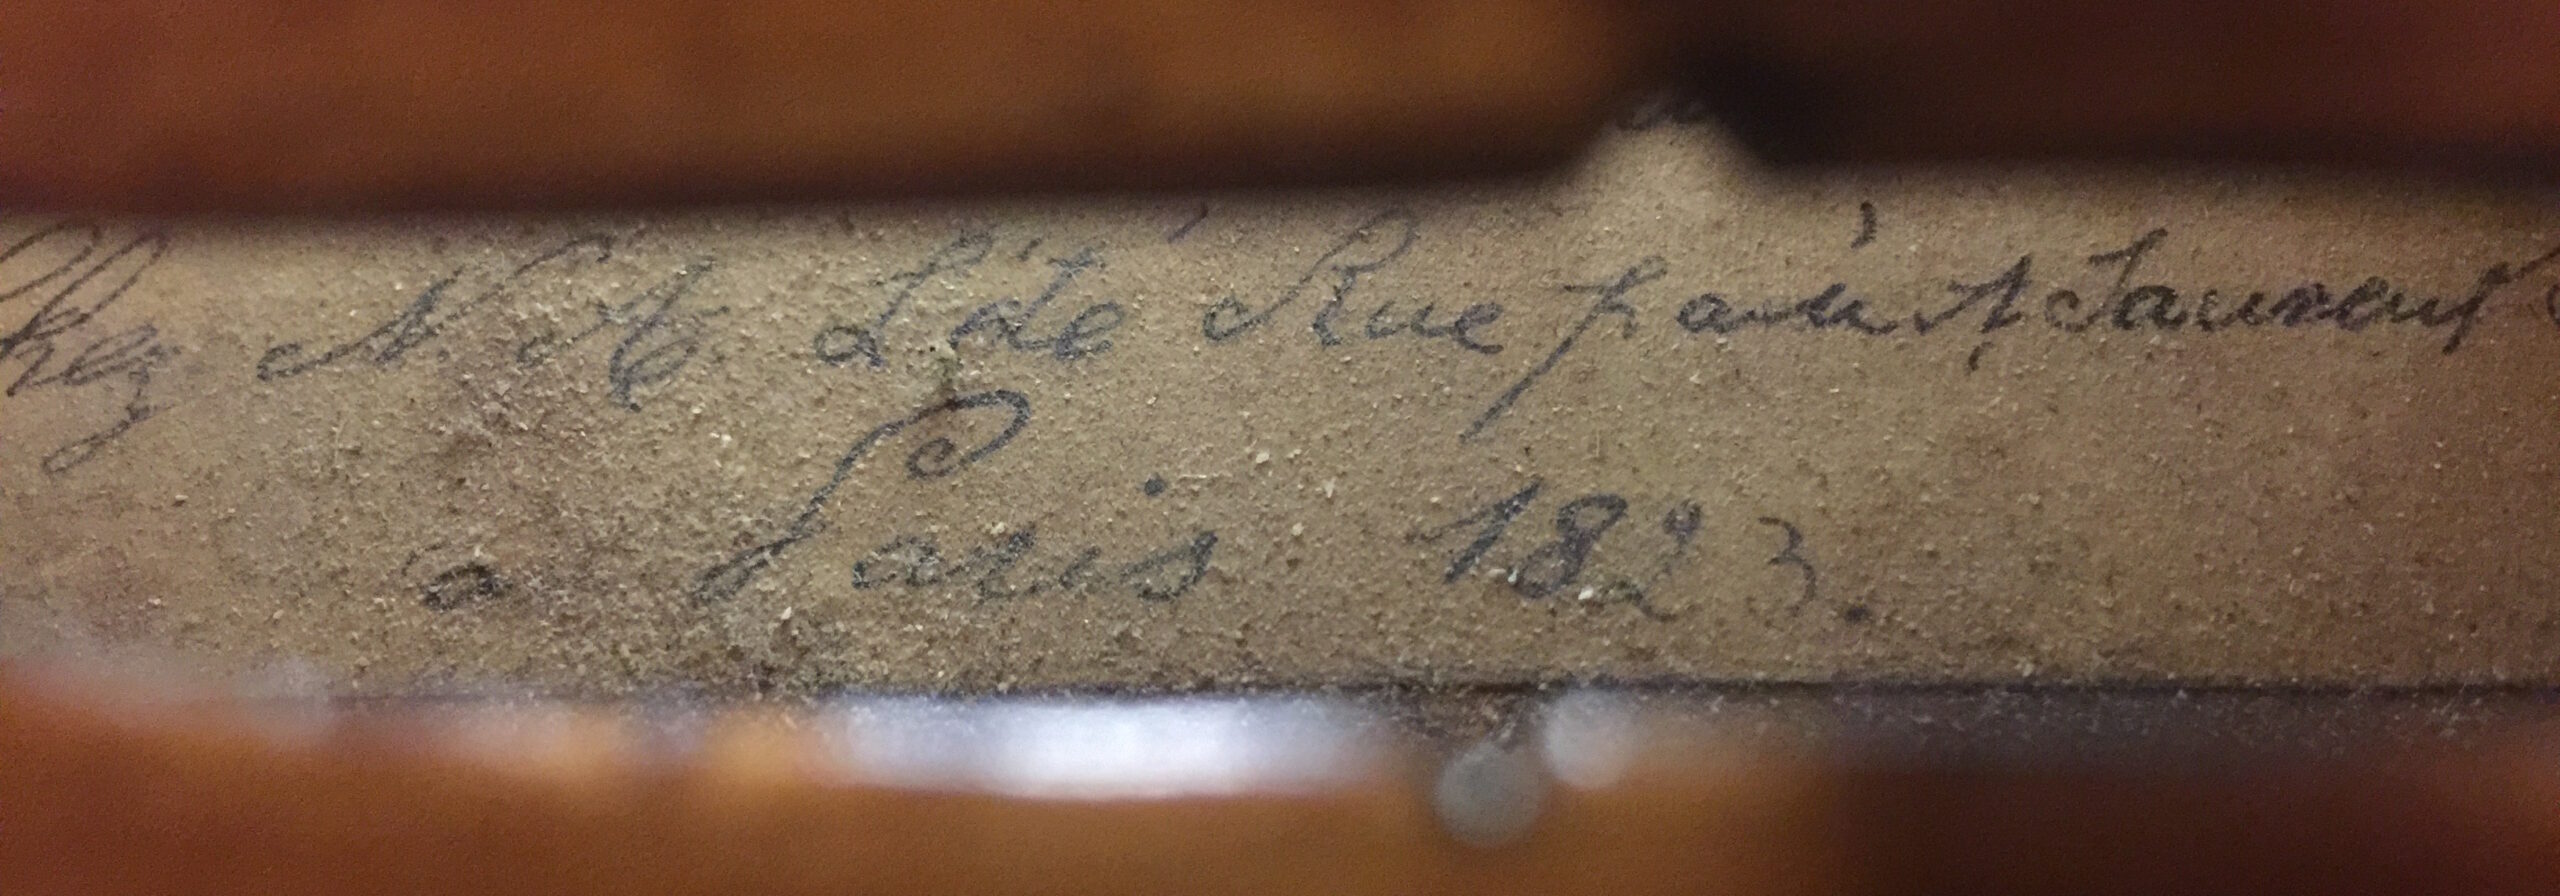 Chez N. A. Lété Rue pavée St Sauveur
à Paris 1823.